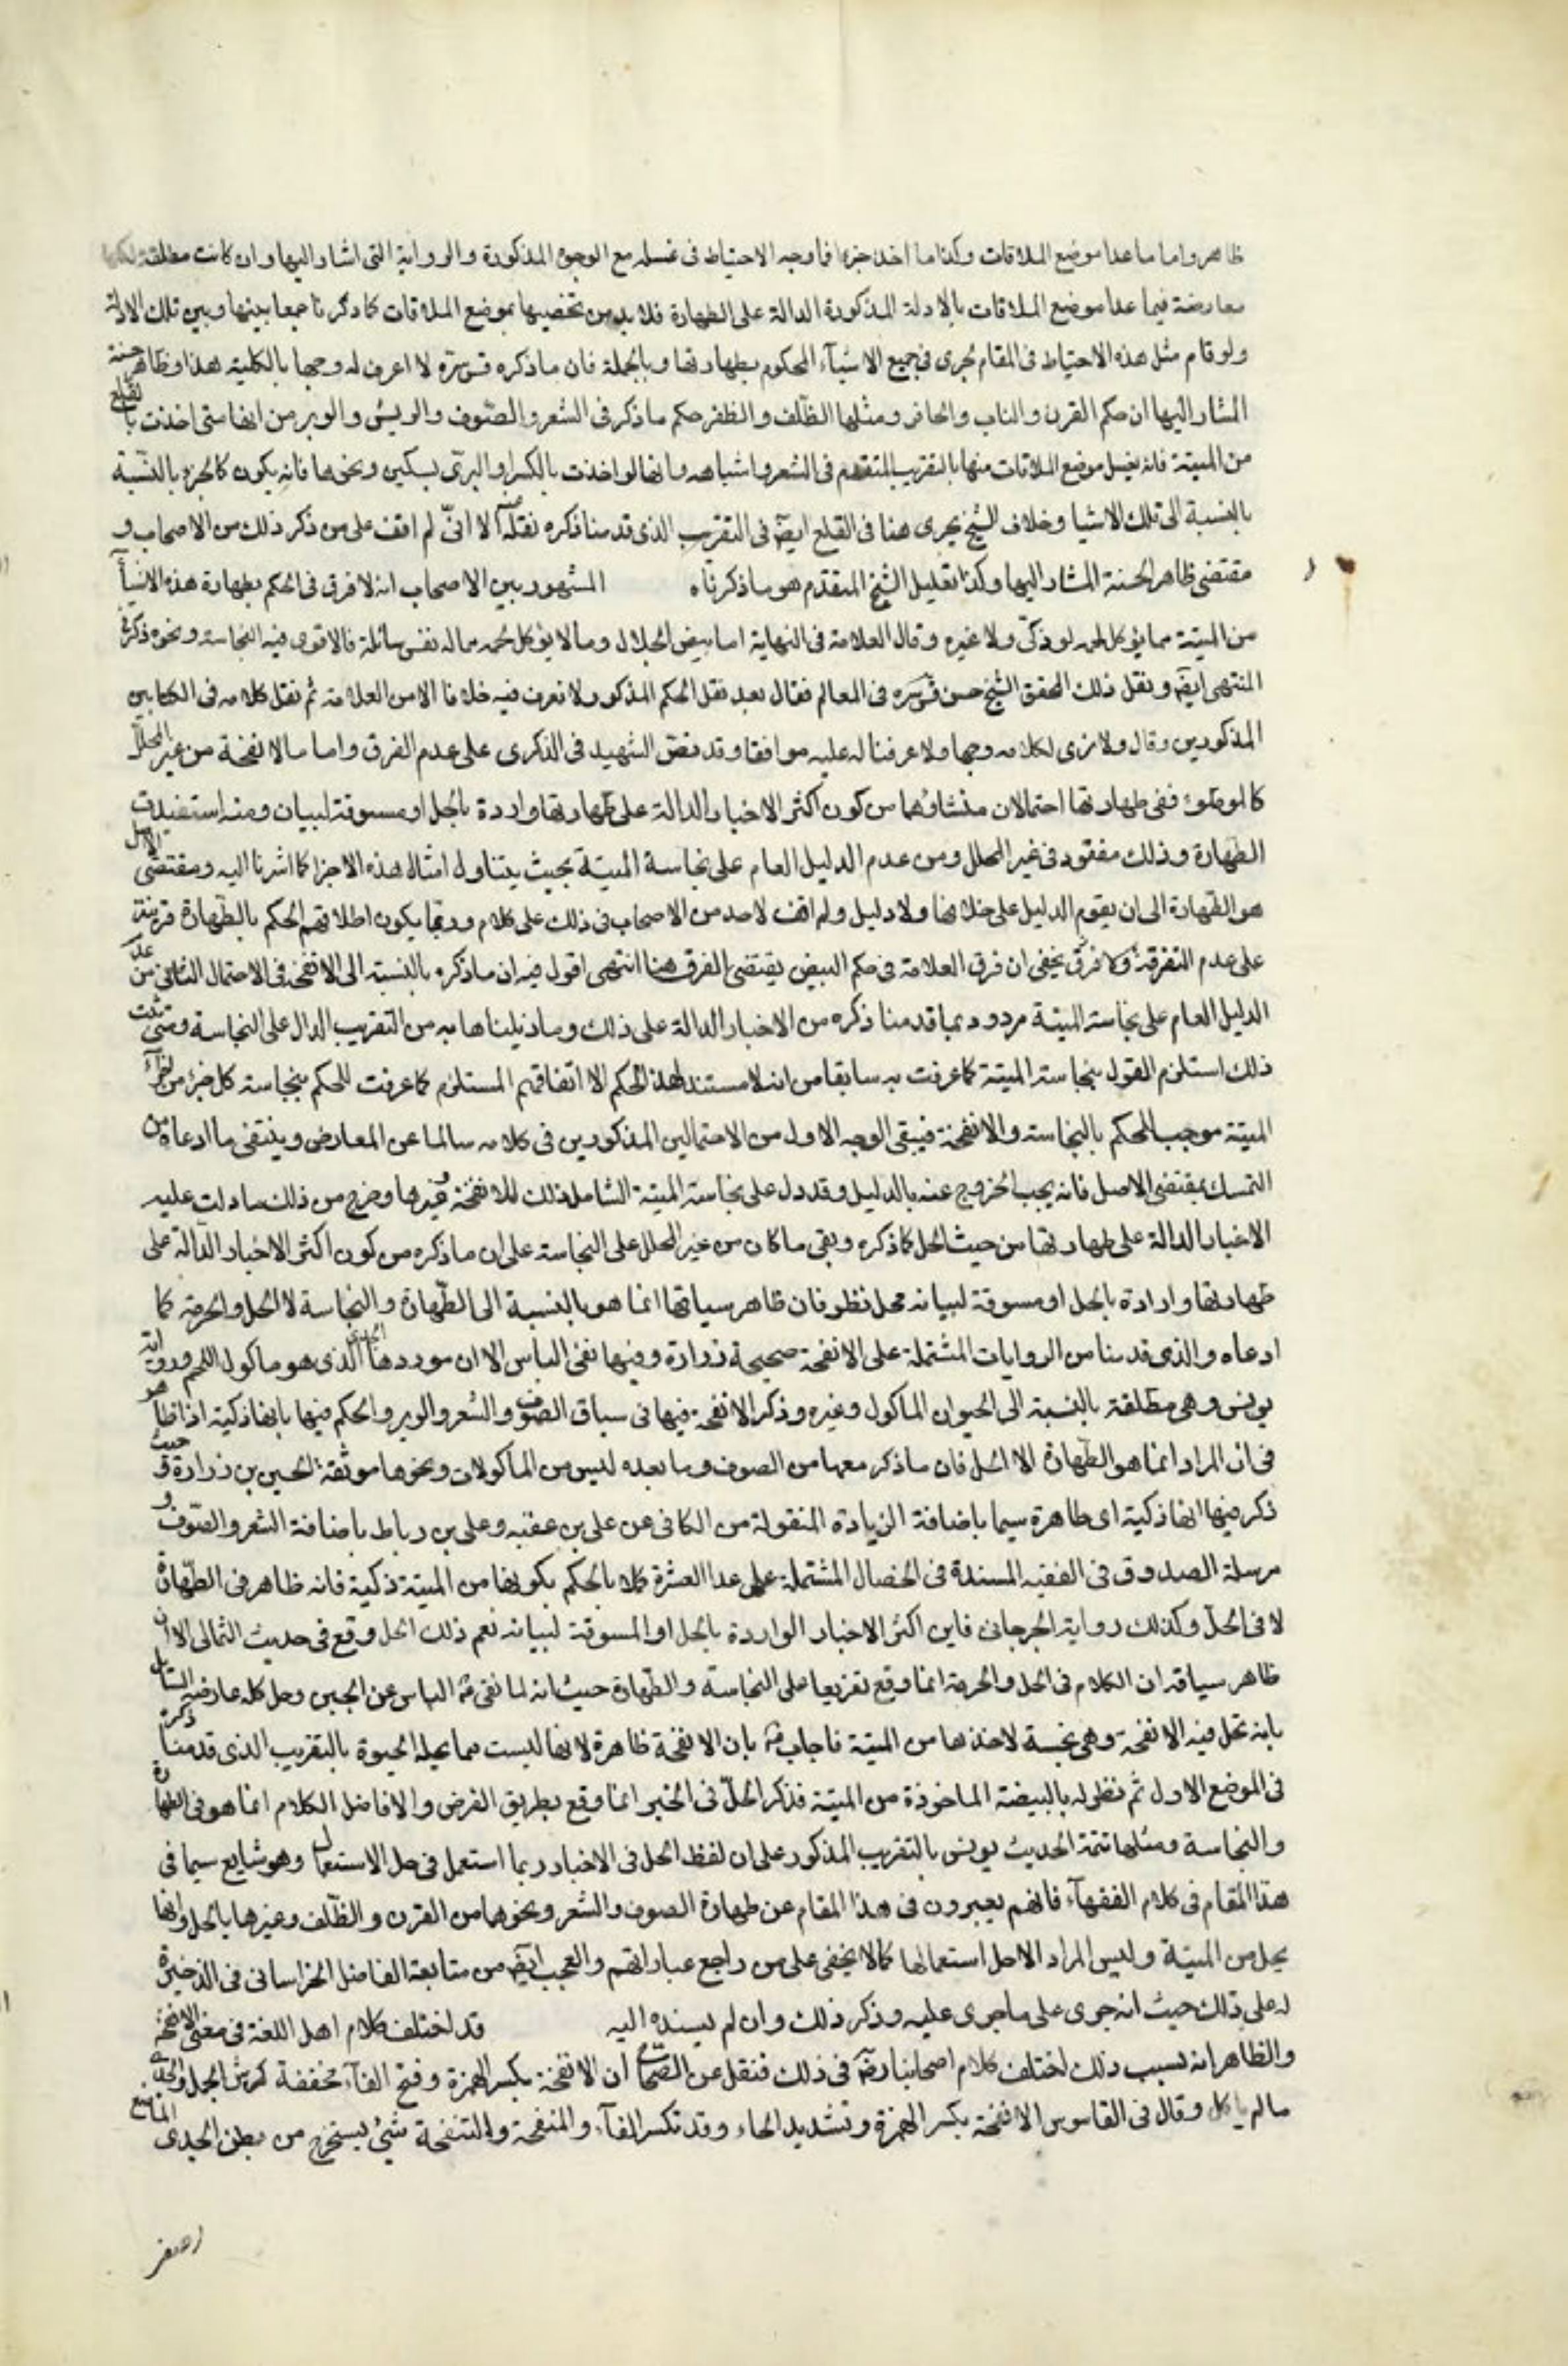 ظاهر واما ما عدا موضع الملاقات وكذا ما اخذ جزا فما وجه الاحتياط فى غسله مع الوجوه المذكورة والرواية التى اشار اليها وان كانت مطلقة لكنها
معارضة فيما عدا موضع الملاقات بالادلة المذكورة الدالة على الطهارة فلا بد من تخصيصها بموضع الملاقات كما ذكرنا جمعا بينها وبين تلك الادلة
ولو قام مثل هذه الاحتياط فى المقام لجرى فى جميع الاشيآء المحكوم بطهارتها وبالجملة فان ما ذكره قدس سره لا اعرف له وجها بالكلية هذا وظاهر حسنة
المشار اليها ان حكم القرن والناب والحافر ومثلها الظلف والظفر حكم ما ذكر فى الشعر والصوف والريش والوبر من انها متى اخذت بالقلع
من الميتة فانه يغسل موضع الملاقات منها بالتقريب المتقدم فى الشعر واشباهه وانها لو اخذت بالكسر او البرى بسكين ونحوها فانه يكون كالجز بالنسبة
بالنسبة الى تلك الاشيا وخلاف الشيخ يجرى هنا فى القلع ايضا فى التقريب الذى قدمنا ذكره نقله عنه الا انى لم اقف على من ذكر ذلك من الاصحاب و
مقتضى ظاهر الحسنة المشار اليها وكذا تعليل الشيخ المتقدم هو ما ذكرناه المشهور بين الاصحاب انه لا فرق فى الحكم بطهارة هذه الاشيآ
من الميتة مما يؤكل لحمه لو ذكى ولا غيره وقال العلامة فى النهاية اما بيض الجلال وما لا يؤكل لحمه مما له نفس سائلة فالاقوى فيه النجاسة ونحوه ذكر فى
المنتهى ايضا ونقل ذلك المحقق الشيخ حسن قدس سره فى المعالم فقال بعد نقل الحكم المذكور ولا نعرف فيه خلافا الا من العلامة ثم نقل كلامه فى الكتابين
المذكورين وقال ولا نرى لكلامه وجها ولا عرفنا له عليه موافقا وقد نص الشهيد فى الذكرى على عدم الفرق واما ما لانفخة من غير المحلل
كالموطؤ ففى طهارتها احتمالان منشاؤهما من كون اكثر الاخبار الدالة على طهارتها واردة بالحل او مسوقة لبيان ومنه استفيدت
الطهارة وذلك مفقود فى غير المحلل ومن عدم الدليل العام على نجاسة الميتة بحيث يتناول امثال هذه الاجزا كما اشرنا اليه ومقتضى الاصل
هو الطهارة الى ان يقوم الدليل على خلافها ولا دليل ولم اقف لاحد من الاصحاب فى ذلك على كلام وربما يكون اطلاقهم الحكم بالطهارة قرينة
على عدم التفرقة وكا فرق يخفى ان فرق العلامة فى حكم البيض يقتضى الفرق هنا انتهى اقول فيه ان ما ذكره بالنسبة الى الانفخة فى الاحتمال الثانى من عدم
الدليل العام على نجاسة الميتة مردود بما قدمنا ذكره من الاخبار الدالة على ذلك وما ذيلناها به من التقريب الدال على النجاسة ومتى ثبت
ذلك استلزم القول بنجاسة الميتة كما عرفت به سابقا من انه لا مستند لهذا الحكم الا اتفاقهم المستلزم كما عرفت للحكم بنجاسة كل جزء من اجزآء
الميتة موجب للحكم بالنجاسة والانفخة فيبقى الوجه الاول من الاحتمالين المذكورين فى كلامه سالما عن المعارض وينتفى ما ادعاه من
التمسك بمقتضى الاصل فانه يجب الخروج عنه بالدليل وقد دل على نجاسة الميتة الشامل ذلك للانفخة وغيرها وخرج من ذلك ما دلت عليه
الاخبار الدالة على طهارتها من حيث الحل كما ذكره وبقى ما كان من غير المحلل على النجاسة على ان ما ذكره من كون اكثر الاخبار الدالة على
طهارتها واردة بالحل او مسوقة لبيانه محل نظر فان ظاهر سياقها انما هو بالنسبة الى الطهارة والنجاسة لا الحل والحرمة كما
ادعاه والذى قدمنا من الروايات المشتملة على الانفحة صحيحة زرارة وفيها نفى الباس الا ان موردها الجدى الذى هو ماكول اللحم ورواية
يونس وهى مطلقة بالنسبة الى الحيوان الماكول وغيره وذكر الانفحة فيها فى سياق الصوف والشعر والوبر والحكم فيها بانها ذكية اذا ظاهر
فى ان المراد انما هو الطهارة لا الاكل فان ما ذكر معها من الصوف وما بعده ليس من الماكولات ونحوها موثقة الحسين بن زرارة حيث
ذكر فيها انها ذكية اى طاهرة سيما باضافة الزيادة المنقولة من الكافى عن على بن عقبه وعلى بن رباط باضافة الشعر والصوف و
مرسلة الصدوق فى الفقيه المسندة فى الخصال المشتملة على عدا العشرة كملا بالحكم بكونها من الميتة ذكية فانه ظاهر فى الطهارة
لا فى الحل وكذلك رواية الجرجانى فاين اكثر الاخبار الواردة بالحل او المسوقة لبيانه نعم ذلك الحل وقع فى حديث الثمالى الا ان
ظاهر سياقه ان الكلام فى الحل والحرمة انما وقع تفريعا على النجاسة والطهارة حيث انه لما نفى الباس عن الجبن وحل كله عارضه السائل
بانه تحل فيه الانفحة وهى نجسة لاخذها من الميتة فاجاب بان الانفحة طاهرة لانها ليست مما يحله الحيوة بالتقريب الذى قدمنا ذكره
فى الموضع الاول ثم نظر له بالبيضة الماخوذة من الميتة فذكر الحل فى الخبر انما وقع بطريق الفرض والا فاصل الكلام انما هو فى الطهارة
والنجاسة ومثلها تتمة الحديث يونس بالتقريب المذكور على ان لفظ الحل فى الاخبار ربما استعمل فى حل الاستعمال وهو شايع سيما فى
هذا المقام فى كلام الفقهآء فانهم يعبرون فى هذا المقام عن طهارة الصوف والشعر ونحوهما من القرن والظلف وغيرها بالحل وانها
يحل من الميتة وليس المراد الا حل استعمالها كما لا يخفى على من راجع عباراتهم والعجب ايضا من متابعة الفاضل الخراسانى فى الذخيرة
له على ذلك حيث انه جرى على ما جرى عليه وذكر ذلك وان لم يسنده اليه قد اختلف كلام اهل اللغة فى معنى الانفحة
والظاهر انه بسبب ذلك اختلف كلام اصحابنا رض فى ذلك فنقل عن الصحاح ان الانفحة بكسر الهمزة وفتح الفآء مخففة كرش الحمل والجدى
ما لم ياكل وقال فى القاموس الانفحة بكسر الهمزة وتشديد الحاء وقد تكسر الفآء والمنفحة والتنفحة شئ يستخرج من بطن الجدى الراضع
اصفر